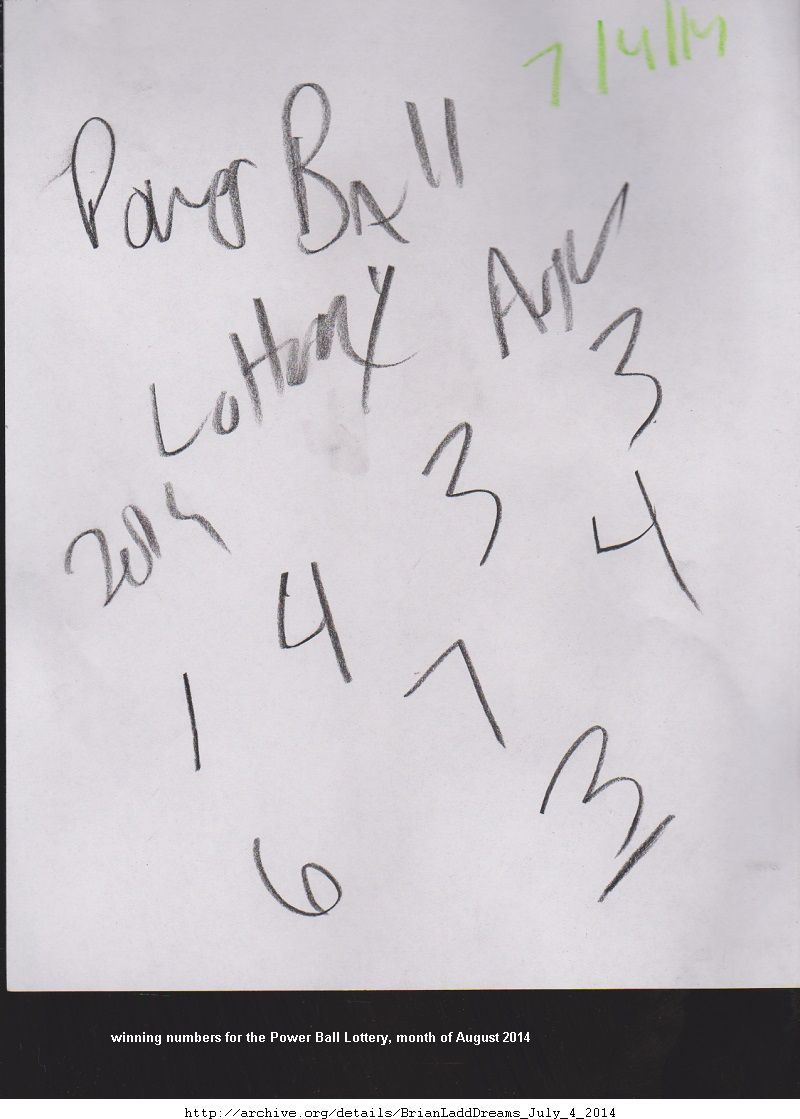 7/4/14
Power Ball
Lottery Aug
2014
3 3
4 4
1 7
6 3
winning numbers for the Power Ball Lottery, month of August 2014
http://archive.org/details/BrianLaddDreams_July_4_2014